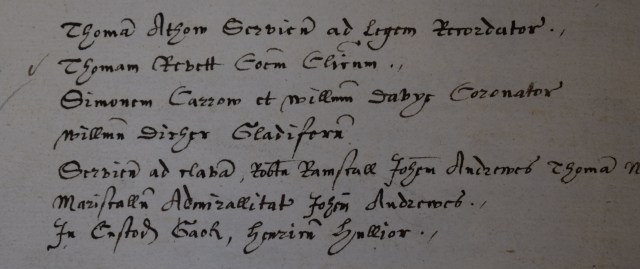 Thomā Athow Servien̄ ad legem Recordator.,
Thomam Revett Cōem Cl̄icum.,
Simonem Carrow et Willm̄n Davye Coronator
Willm̄n Dicher Gladifern̄
Servien̄ ad clavā, Robtū Ramsall Johēn Andrewes Thomā
Mariscallū Admirallitat Johēn Andrewes.,
In Custod Gaol, Henricū Hullior.,